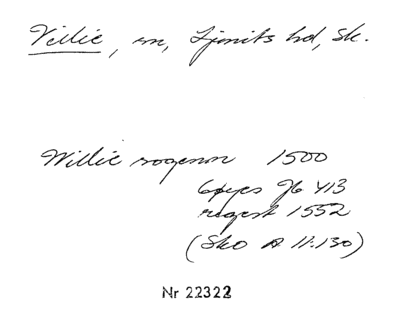 Vellie, sn, Ljunits hd, Sk.
Willie sogenn 1500
Gb 413
regest 1552
(Sko A 11:130)
Nr 22322